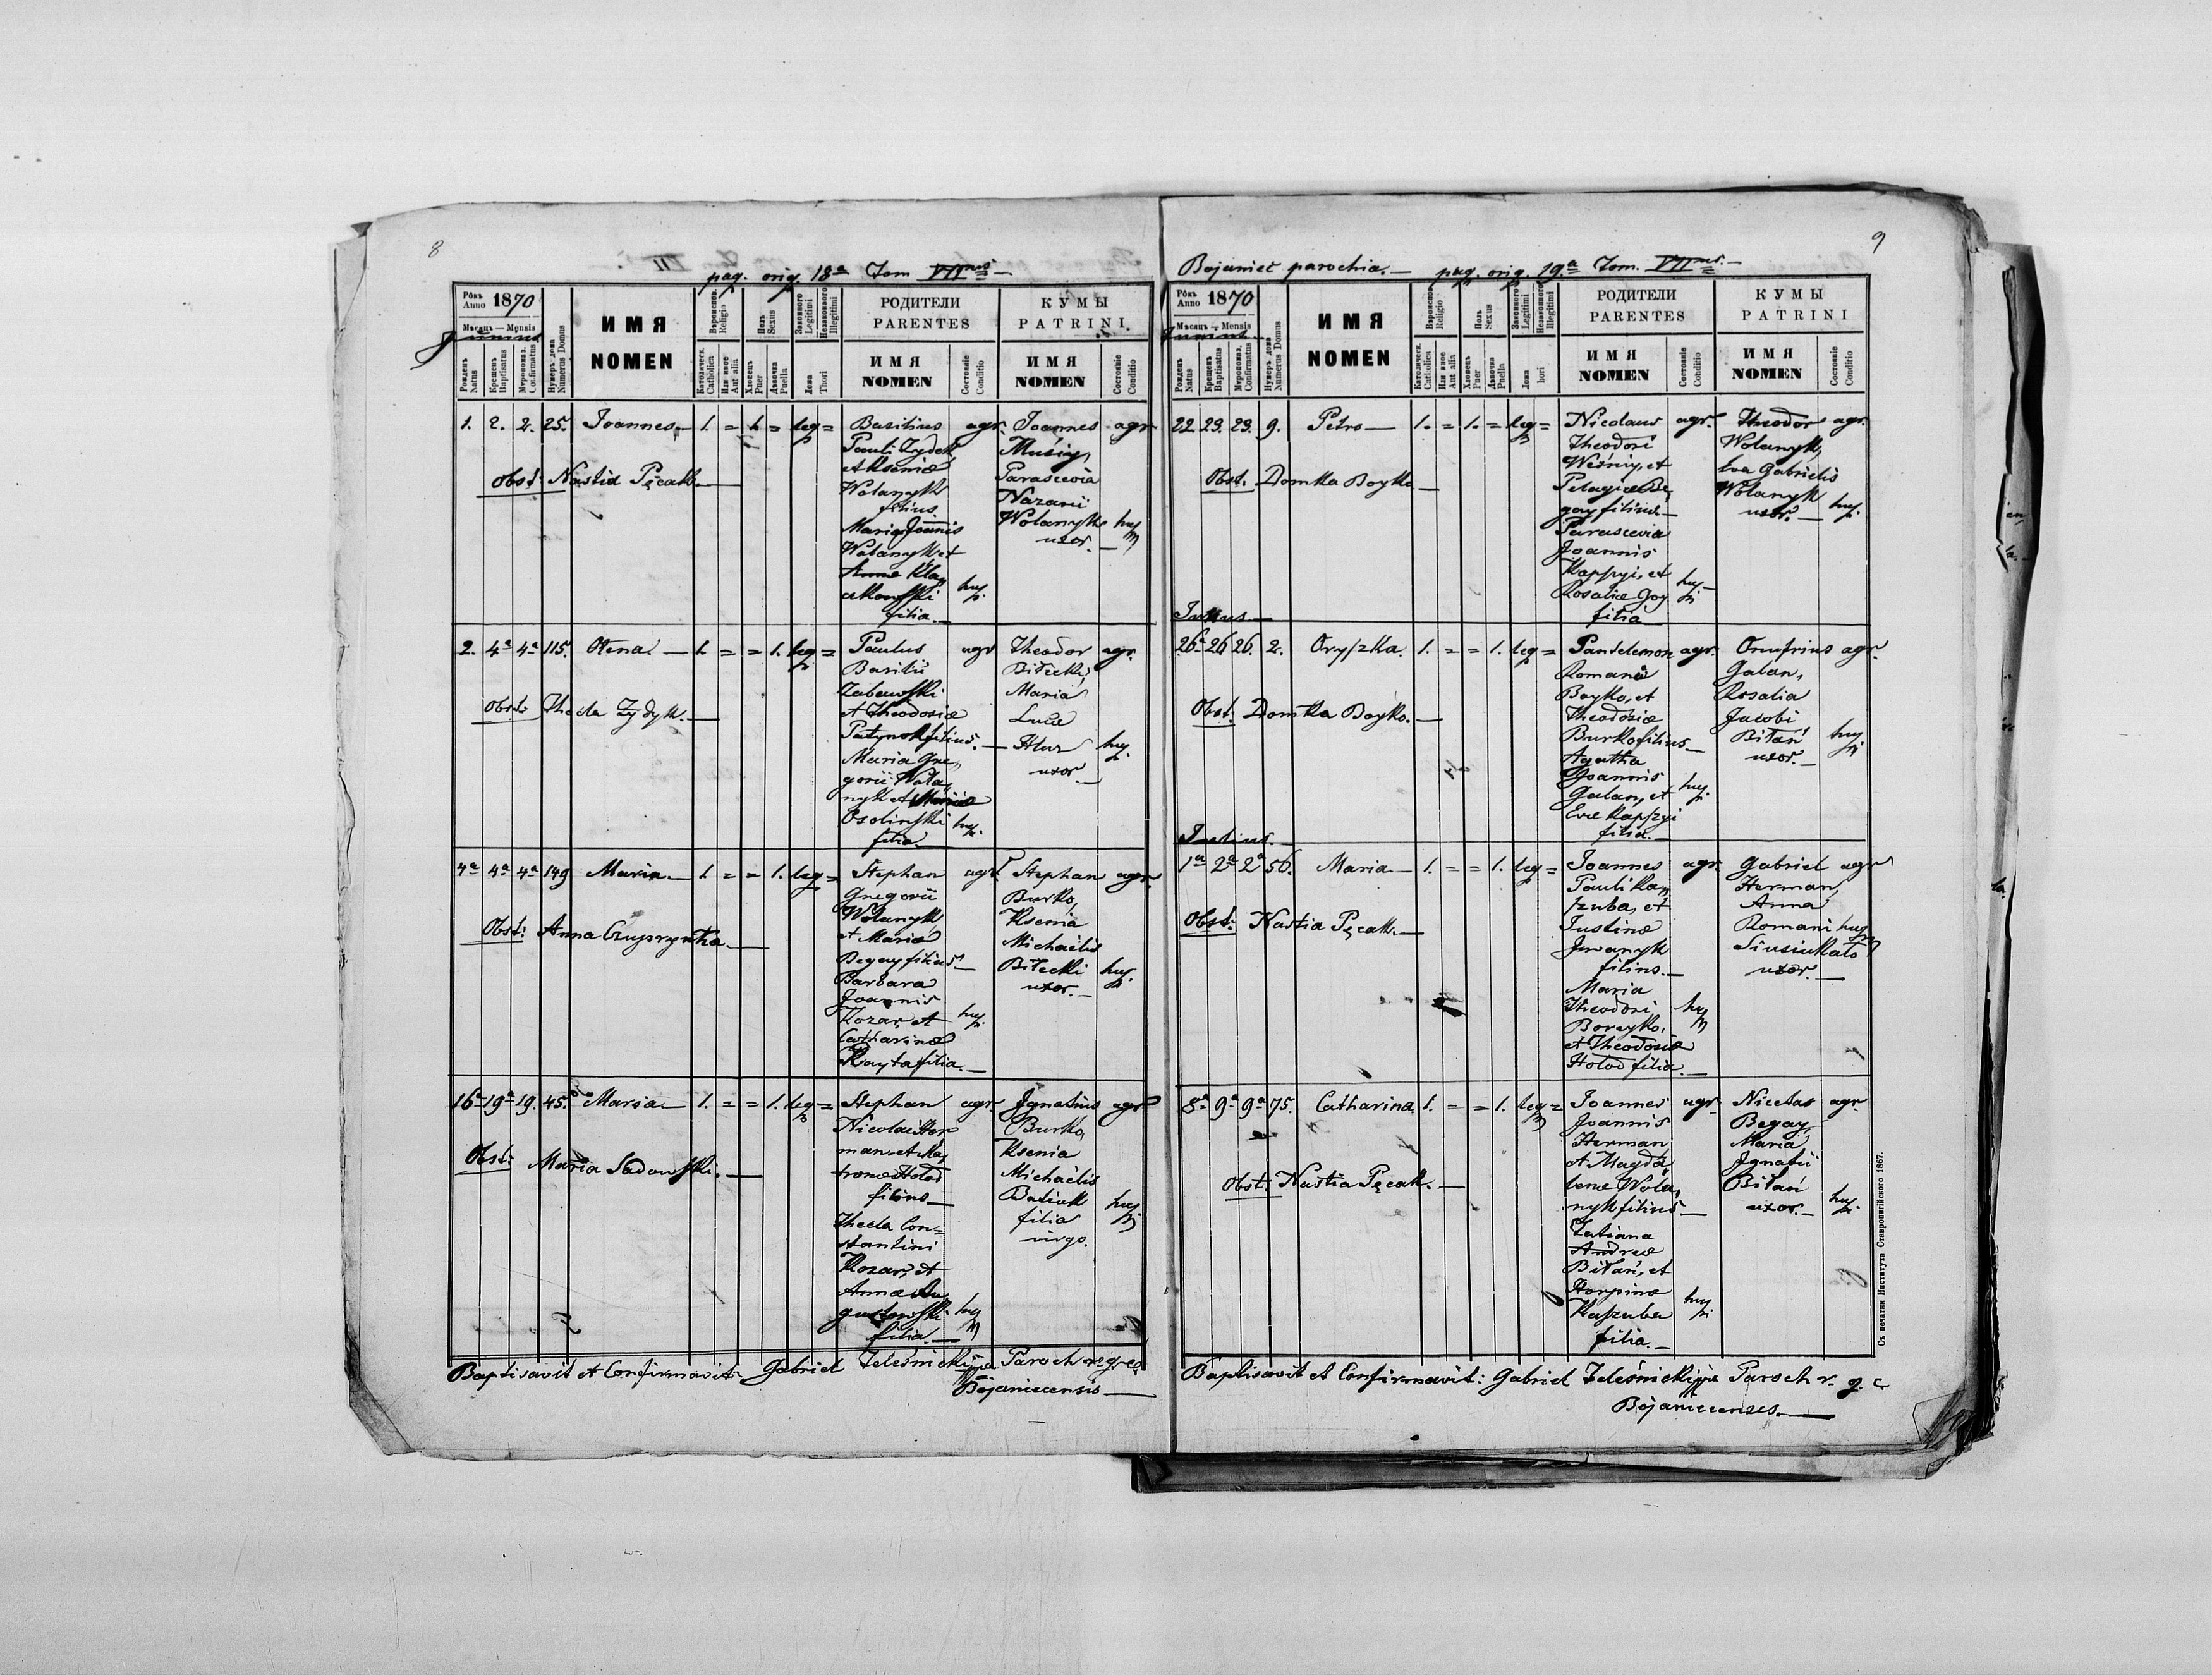 8
pag. orig. 18ª Tom VIImus
Рôкъ Anno 1870
Мѣсяць — Mensis
Junius
Рожденъ Natus
Крещенъ Baptisatus
Мѵропомаз. Confirmatus
Нумеръ дома Numerus Domus
ИМЯ
NOMEN
Religio
Католическ. Catholica
Или иное Aut alia
Полъ Sexus
Хлопець Puer
Дѣвочка Puella
Законного Legitimi
Незаконного Illegitimi
Ложа Thori
РОДИТЕЛИ
PARENTES
ИМЯ
NOMEN
Состояніе Conditio
КУМЫ
PATRINI.
ИМЯ
NOMEN
Состояніе Conditio
1. 2. 2. 25. Joannes — 1. = 1. = leg =
Obst: Nastia Pęcak. —
Basilius agr.
Pauli Zydek
et Kseniæ
Wolanyk
filius.
Maria Joannis
Wolanyk, et
Annæ
filia. —
Joannes agr.
Musiy,
Parascevia
Nazarii
Wolanyk huj.
uxor. —
2. 4ª 4ª 115. Olena. — 1. = = 1. leg =
Obst: Thecla Zydyk. —
Paulus agr.
Basilii
et Theodosiæ
filius. —
Maria Gre„
gorii Wola„
nyk et Mariæ
Osolinski huj.
filia. —
Theodor agr.
Bitecki,
Maria
Lucæ
Hur huj.
uxor. —
4ª 4ª 4ª 149 Maria. — 1. = = 1. leg =
Obst: Anna Czuprynka. —
Stephan agr.
Gregorii
Wolanyk,
et Mariæ
Begay filius —
Barbara
Joannis
Kozar, et huj.
Catharinæ
filia. —
Stephan agr.
Burko,
Ksenia
Michaëlis
Bitecki huj.
uxor. —
16ª 19ª 19. 45. Maria — 1. = = 1. leg =
Obst: Maria Sadowski. —
Stephan agr.
Nicolai Her
man et Ma„
tronæ Holod
filius —
Thecla Con=
stantini
Kozar, et
Annæ Au„
gustowski huj.
filia. —
Ignatius agr.
Burko,
Ksenia
Michaëlis
Batiuk huj.
filia
virgo.
Baptisavit et Confirmavit: Gabriel Zeleśnicki Paroch r. g. c.
Bojanicensis —
9
Bojaniec parochia. — pag. orig. 19.ª Tom. VIImus. —
Рôкъ Anno 1870
Мѣсяць — Mensis
Junius
Рожденъ Natus
Крещенъ Baptisatus
Мѵропомаз. Confirmatus
Нумеръ дома Numerus Domus
ИМЯ
NOMEN
Religio
Католическ. Catholica
Или иное Aut alia
Полъ Sexus
Хлопець Puer
Дѣвочка Puella
Законного Legitimi
Незаконного Illegitimi
Ложа hori
РОДИТЕЛИ
PARENTES
ИМЯ
NOMEN
Состояніе Conditio
КУМЫ
PATRINI
ИМЯ
NOMEN
Состояніе Conditio
22. 29. 29. 9. Petro — 1. = 1. = leg =
Obst. Domka Boyko —
Nicolaus agr.
Theodori
Wiśniy, et
Pelagiæ Be„
gay filius. —
Parascevia
Joannis
et huj.
Rosaliæ Goy
filia
Theodor agr.
Wolanyk,
Eva Gabrielis
Wolanyk huj.
uxor. —
Julius. —
26ª 26 26. 2. Oryszka. 1. = = 1. leg =
Obst: Domka Boyko. —
Pantelemon agr.
Romani
Boyko, et
Theodosiæ
Burko filius —
Agatha
Joannis
Galan, et huj.
Evæ Kapszyi
filia. —
Onufrius agr.
Galan,
Rosalia
Jacobi
Bitań huj.
uxor. —
1ª 2ª 2ª 56. Maria — 1. = = 1. leg =
Obst: Nastia Pęcak. —
Joannes agr.
Pauli Ka„
szuba, et
Justinæ
Iwanyk
filius. —
Maria
Theodori huj.
Boreyko,
et Theodosiæ
Holod filia. —
Gabriel agr.
Herman,
Anna
Romani huj.
uxor. —
8ª 9ª 9ª 75. Catharina. 1. = = 1. leg =
Obst: Nastia Pęcak. —
Joannes agr.
Joannis
Herman
et Magda„
lenæ Wola„
nyk filius —
Tatiana
Andreæ
Bitań, et
Horpinæ
Kaszuba huj.
filia. —
Nicetas agr.
Begay,
Maria
Ignatii
Bitań huj.
uxor. —
Baptisavit et Confirmavit: Gabriel Zeleśnicki Paroch r. g. c.
Bojanicensis. —
Съ печатни Института Ставропигійского 1867.